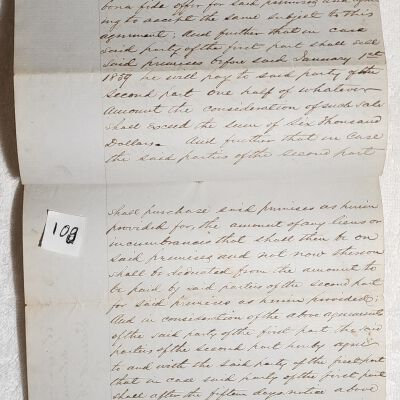 bona fide offer for said premises and agree
ing to accept the same subject to this
agreement; And further that in case
said party of the first part shall sell
said premises before said January 1st
1859 he will pay to said party of the
second part one half of whatever
amount the consideration of such sale
shall exceed the sum of six thousand
Dollars. And further that in case
the said parties of the second part
shall purchase said premises as herein
provided for, the amount of any liens or
incumbrances that shall then be on
said premises and not now thereon
shall be deducted from the amount to
be paid by said parties of the second part
for said premises as herein provided;
And in consideration of the above agreement
of the said party of the first part the said
parties of the second part herby agree
to and with the said party of the first part
that in case said party of the first part
shall after the fifteen days notice above
109